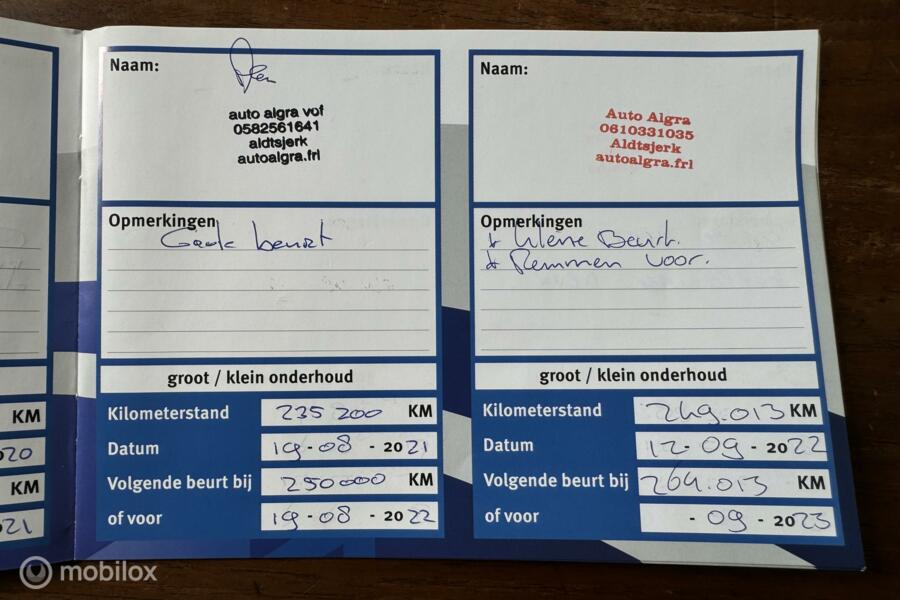 KM
20
KM
21
Naam:
auto algra vof
0582561641
aldtsjerk
autoalgra.frl
Opmerkingen
beurt
groot / klein onderhoud
Kilometerstand 235 200 KM
Datum 19-08-2021
Volgende beurt bij 250000 KM
of voor 19-08-2022
Naam:
Auto Algra
0610331035
Aldtsjerk
autoalgra.frl
Opmerkingen
* kleine Beurt.
* Remmen voor.
groot / klein onderhoud
Kilometerstand 249.013 KM
Datum 12-09-2022
Volgende beurt bij 264.013 KM
of voor -09-2023
mobilox